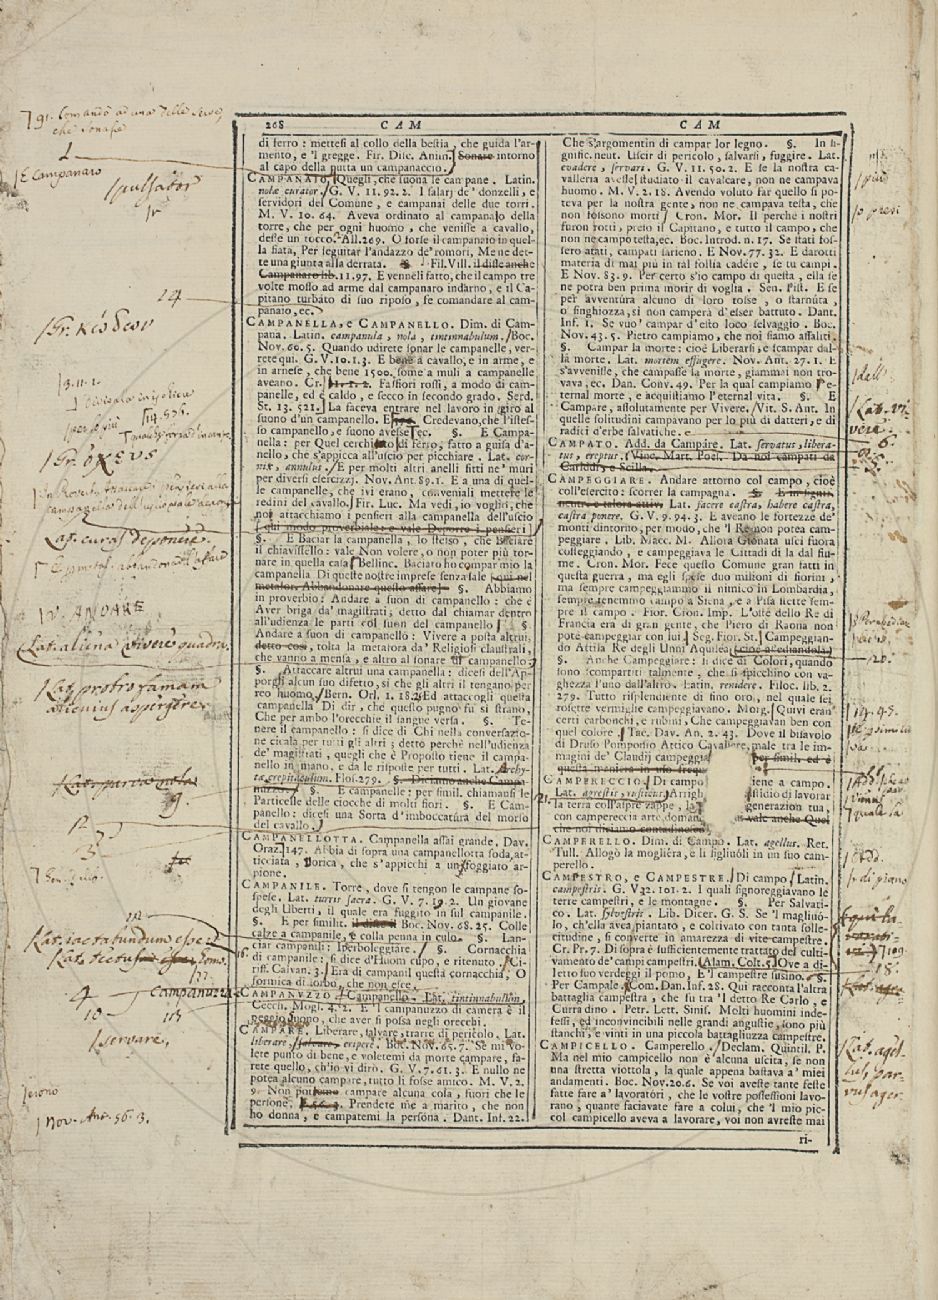 268 CAM CAM
di ferro: mettesi al collo della bestia, che guida l'ar-
mento, e 'l gregge. Fir. Disc. Anim. Sonare intorno
al capo della putta un campanaccio.
CAMPANAIO, Quegli, che suona le campane. Latin.
nolæ curator. G. V. 11. 92. 2. I salarj de' donzelli, e
servidori del Comune, e campanai delle due torri.
M. V. 10. 64. Aveva ordinato al campanajo della
torre, che per ogni huomo, che venisse a cavallo,
desse un tocco. All. 269. O forse il campanaio in quel-
la fiata, Per seguitar l'andazzo de' romori, Me ne det-
te una giunta alla derrata. §. Fil. Vill. il disse anche
Campanaro lib. 11. 97. E venneli fatto, che il campo tre
volte mosso ad arme dal campanaro indarno, e il Ca-
pitano turbato di suo riposo, fe comandare al cam-
panaio, ec.
CAMPANELLA, e CAMPANELLO. Dim. di Cam-
pana. Latin. campanula, nola, tintinnabulum. Boc.
Nov. 60. 5. Quando udirete sonar le campanelle, ver-
rete qui. G. V. 10. 1. 3. E bene a cavallo, e in arme, e
in arnese, che bene 1500. some a muli a campanelle
aveano. Cr. 11. 2. 2. Fassiori rossi, a modo di cam-
panelle, ed è caldo, e secco in secondo grado. Serd.
St. 13. 521. La faceva entrare nel lavoro in giro al
suono d'un campanello. E Credevano, che l'istes-
so campanello, e suono avesse ec. §. E Campa-
nella: per Quel cerchietto di ferro, fatto a guisa d'a-
nello, che s'appicca all'uscio per picchiare. Lat. cor-
nix, annulus. E per molti altri anelli fitti ne' muri
per diversi esercizzj. Nov. Ant. 89. 1. E a una di quel-
le campanelle, che ivi erano, conveniali mettere le
redini del cavallo. Fir. Luc. Ma vedi, io vogliti, che
noi attacchiamo i pensieri alla campanella dell'uscio
qui modo proverbiale: e vale Deporre i pensieri
§. E Baciar la campanella, o lo stesso, che Baciare
il chiavistello: vale Non volere, o non poter più tor-
nare in quella casa Bellinc. Baciato ho compar mio la
campanella Di queste nostre imprese senza sale qui nel
metafor. Abbandonare quello affare §. Abbiamo
in proverbio: Andare a suon di campanello: che è
Aver briga da' magistrati, detto dal chiamar dentro
all'udienza le parti col suon del campanello §.
Andare a suon di campanello: Vivere a posta altrui,
detto così, tolta la metafora da' Religiosi claustrali,
che vanno a mensa, e altro al sonare il campanello
§. Attaccare altrui una campanella: dicesi dell'Ap-
porgli alcun suo difetto, sì che gli altri il tengano per
reo huomo. Bern. Orl. 1. 18. Ed attaccogli questa
campanella Di dir, che questo pugno fu sì strano,
Che per ambo l'orecchie il sangue versa. §. Te-
nere il campanello: si dice di Chi nella conversazio-
ne cicala per tutti gli altri; detto perchè nell'udienza
de' magistrati, quegli che è Proposto tiene il campa-
nello in mano, e da le risposte per tutti. Lat. Archy-
tæ crepitaculum. Floi. 279. §. Diciamo anche Campa-
nuzzo. §. E campanelle: per simil. chiamansi le
Particelle delle ciocche di molti fiori. §. E Cam-
panella: dicesi una Sorta d'imboccatura del morso
del cavallo.
CAMPANELLOTTA. Campanella assai grande. Dav.
Oraz. 147. Abbia di sopra una campanellotta soda, at-
ticciata, lorica, che s'appicchi a un foggiato ar-
pione.
CAMPANILE. Torre, dove si tengon le campane so-
spese. Lat. turris sacra. G. V. 7. 19. 2. Un giovane
degli Uberti, il quale era fuggito in sul campanile.
§. E per similit. il disse Boc. Nov. 68. 25. Colle
calze a campanile, e colla penna in culo. §. Lan-
ciar campanili: Iperboleggiare. §. Cornacchia
di campanile: si dice d'Huom cupo, e ritenuto. Ci-
rif. Calvan. 3. Era di campanil questa cornacchia, O
formica di sorbo, che non esce.
CAMPANUZZO. Campanello. Lat. tintinnabulum.
Cecch. Mogl. 4. 2. E 'l campanuzzo di camera è il
peggio suono, che aver si possa negli orecchi.
CAMPARE. Liberare, salvare, trarre di pericolo. Lat.
liberare, servare, eripere. Boc. Nov. 65. 7. Se mi vo-
lete punto di bene, e voletemi da morte campare, fa-
rete quello, ch'io vi dirò. G. V. 7. 61. 3. E nullo ne
potea alcuno campare, tutto li fosse amico. M. V. 2.
9. Non potono campare alcuna cosa, fuori che le
persone. Prendete me a marito, che non
ho donna, e campatemi la persona. Dant. Inf. 22.
Che s'argomentin di campar lor legno. §. In si-
gnific. neut. Uscir di pericolo, salvarsi, fuggire. Lat.
evadere, servari. G. V. 11. 50. 2. E se la nostra ca-
valleria avesse studiato il cavalcare, non ne campava
huomo. M. V. 2. 18. Avendo voluto far quello si po-
teva per la nostra gente, non ne campava testa, che
non fossono morti. Cron. Mor. Il perchè i nostri
furon rotti, preso il Capitano, e tutto il campo, che
non ne campò testa, ec. Boc. Introd. n. 17. Se stati fos-
sero atati, campati sarieno. E Nov. 77. 32. E darotti
materia di mai più in tal follia cadere, se tu campi.
E Nov. 83. 9. Per certo s'io campo di questa, ella se
ne potra ben prima morir di voglia. Sen. Pist. E se
per avventura alcuno di loro tosse, o starnuta,
o singhiozza, si non camperà d'esser battuto. Dant.
Inf. 1. Se vuo' campar d'esto loco selvaggio. Boc.
Nov. 43. 5. Pietro campiamo, che noi siamo assaliti.
§. Campar la morte: cioè Liberarsi, e scampar dal-
la morte. Lat. mortem effugere. Nov. Ant. 27. 1. E
s'avvenisse, che campasse la morte, giammai non tro-
vava, ec. Dan. Conv. 49. Per la qual campiamo l'e-
ternal morte, e acquistiamo l'eternal vita. §. E
Campare, assolutamente per Vivere. Vit. S. Ant. In
quelle solitudini campavano per lo più di datteri, e di
radici d'erbe salvatiche.
CAMPATO. Add. da Campare. Lat. servatus, libera-
tus, ereptus. Vinc. Mart. Poes. Da noi campati da
Cariddi, e Scilla.
CAMPEGGIARE. Andare attorno col campo, cioè
coll'esercito: scorrer la campagna. §. E in signif.
neutr. e talora attiv. Lat. facere castra, habere castra,
castra ponere. G. V. 9. 94. 3. E aveano le fortezze de'
monti dintorno, per modo, che 'l Re non potea cam-
peggiare. Lib. Macc. M. Allora Gionata uscì fuora
costeggiando, e campeggiava le Cittadi di la dal fiu-
me. Cron. Mor. Fece questo Comune gran fatti in
questa guerra, ma egli spese duo milioni di fiorini,
ma sempre campeggiammo il nimico in Lombardia,
sempre tenemmo campo a Siena, e a Pisa stette sem-
pre il campo. Fior. Cron. Imp. L'oste dello Re di
Francia era di gran gente, che Piero di Raona non
potè campeggiar con lui. Seg. Fior. St. Campeggian-
do Attila Re degli Unni Aquilea (cioè assediandola)
§. Anche Campeggiare: si dice di Colori, quando
sono scompartiti talmente, che si spicchino con va-
ghezza l'uno dall'altro. Latin. renidere. Filoc. lib. 2.
279. Tutto risplendiente di fino oro, nel quale sei
rosette vermiglie campeggiavano. Morg. Quivi eran
certi carbonchi, e rubini, Che campeggiavan ben con
quel colore. Tac. Dav. An. 2. 43. Dove il bisavolo
di Druso Pomponio Attico Cavaliere, male tra le im-
magini de' Claudj campeggia per simil. ed è
questa
CAMPERECCIO. Di campo iene a campo.
Lat. agrestis, rusticus. Arrigh. stidio di lavorar
la terra coll'aspre zappe, la generazion tua,
con campereccia arte, doman vale anche Quel
che noi diciamo contadinesco
CAMPERELLO. Dim. di Campo. Lat. agellus. Ret.
Tull. Allogò la mogliera, e li figliuoli in un suo cam-
perello.
CAMPESTRO, e CAMPESTRE. Di campo. Latin.
campestris. G. V. 12. 101. 2. I quali signoreggiavano le
terre campestri, e le montagne. §. Per Salvati-
co. Lat. sylvestris. Lib. Dicer. G. S. Se 'l magliuò-
lo, ch'ella avea piantato, e coltivato con tanta solle-
citudine, si converte in amarezza di vite campestre.
Cr. Pr. 7. Di sopra è sufficientemente trattato del culti-
vamento de' campi campestri. Alam. Colt. 5. Ove a di-
letto suo verdeggi il pomo, E 'l campestre susino. §.
Per Campale. Com. Dan. Inf. 28. Qui racconta l'altra
battaglia campestra, che fu tra 'l detto Re Carlo, e
Curradino. Petr. Lett. Sinif. Molti huomini inde-
fessi, ed inconvincibili nelle grandi angustie, sono più
stanchi, e vinti in una piccola battagliuzza campestre.
CAMPICELLO. Camperello. Declam. Quintil. P.
Ma nel mio campicello non è alcuna uscita, se non
una stretta viottola, la quale appena bastava a' miei
andamenti. Boc. Nov. 20. 6. Se voi aveste tante feste
fatte fare a' lavoratori, che le vostre possessioni lavo-
rano, quante faciavate fare a colui, che 'l mio pic-
col campicello aveva a lavorare, voi non avreste mai
ri-
91. Comandò ad una delle serve,
che sonasse
E Campanaro
pulsator
14
Gr. κώδων
3. 11. 1.
Lat. curas deponere
V. ANDARE
Lat. aliena vivere quadra
Lat. probro famam
alicuius aspergere
9.
12
3
Lat. iactabundum esse
Lat. tectus homo
4 campanuzza
10
servare,
Nov. Ant. 56. 3.
presi
Lat. vi-
vere
6.
20.
Add.
di piano
109.
18.
Lat. agel-
lus, par-
vus ager.